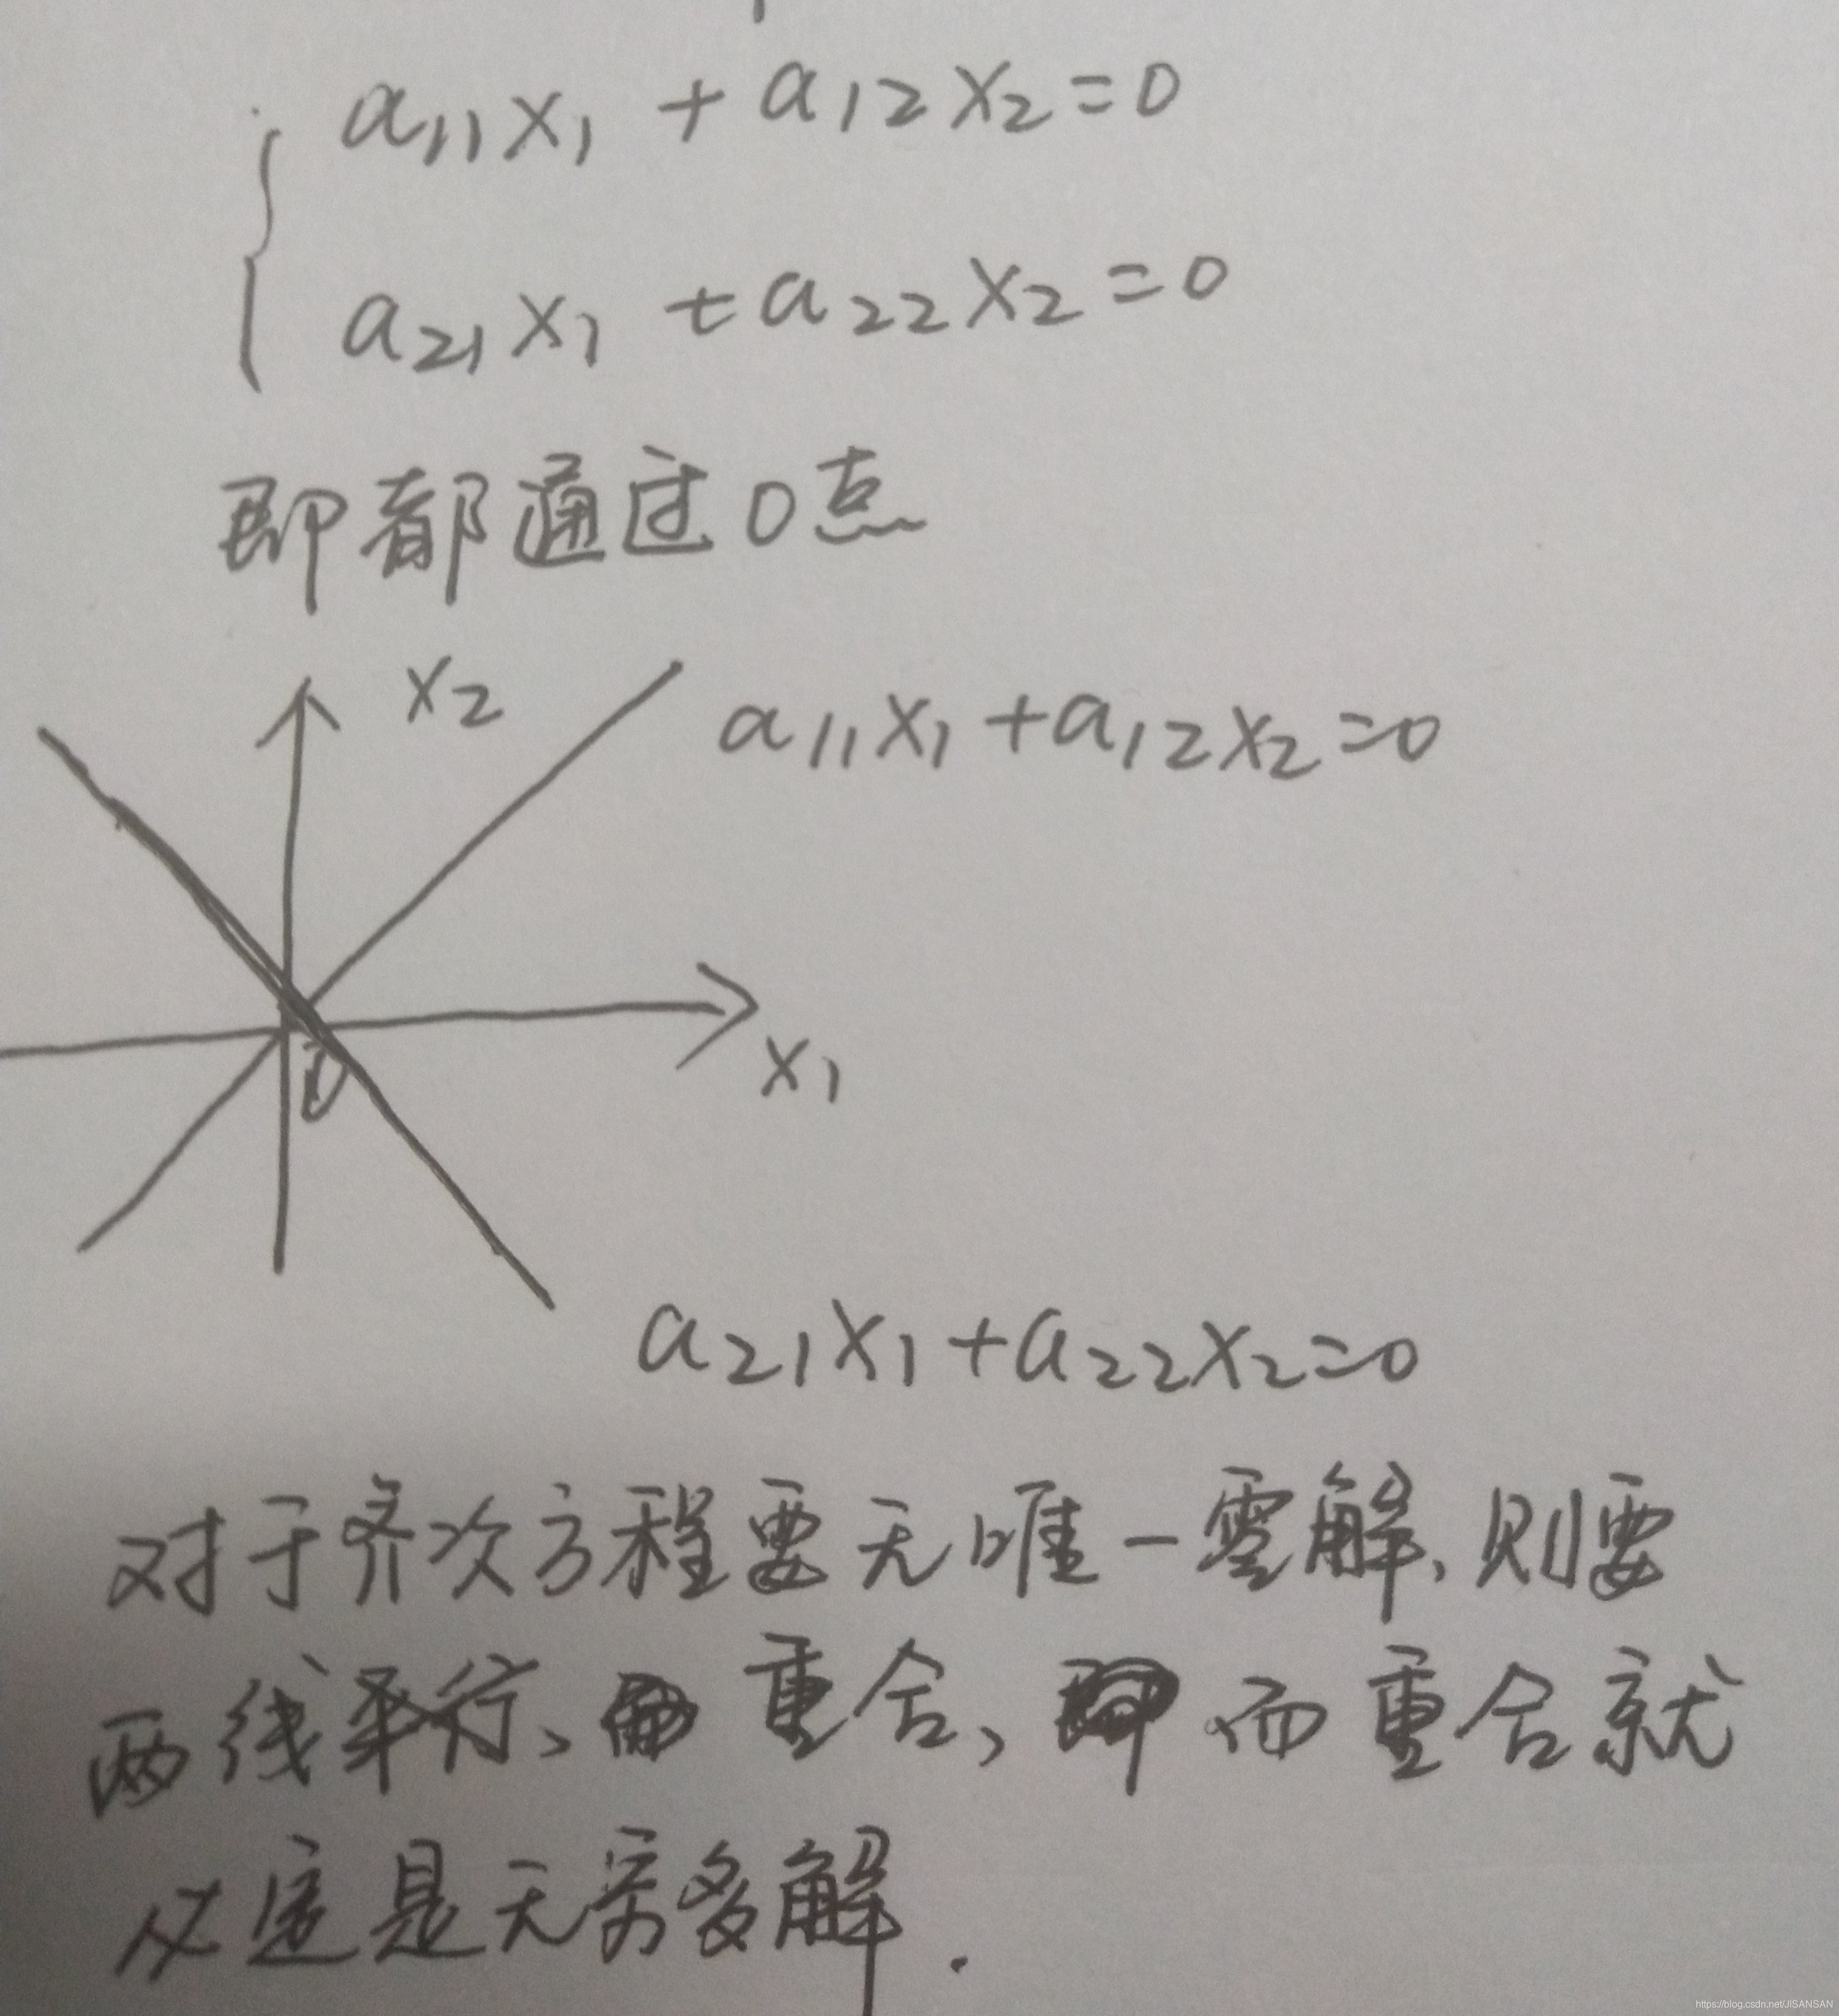 a₁₁x₁ + a₁₂x₂=0
a₂₁x₁ + a₂₂x₂=0
即都通过0点
x₂
a₁₁x₁+a₁₂x₂=0
x₁
0
a₂₁x₁+a₂₂x₂=0
对于齐次方程要无唯一零解,则要
两线平行、重合,而重合就
必定是无穷多解.
https://blog.csdn.net/JISANSAN